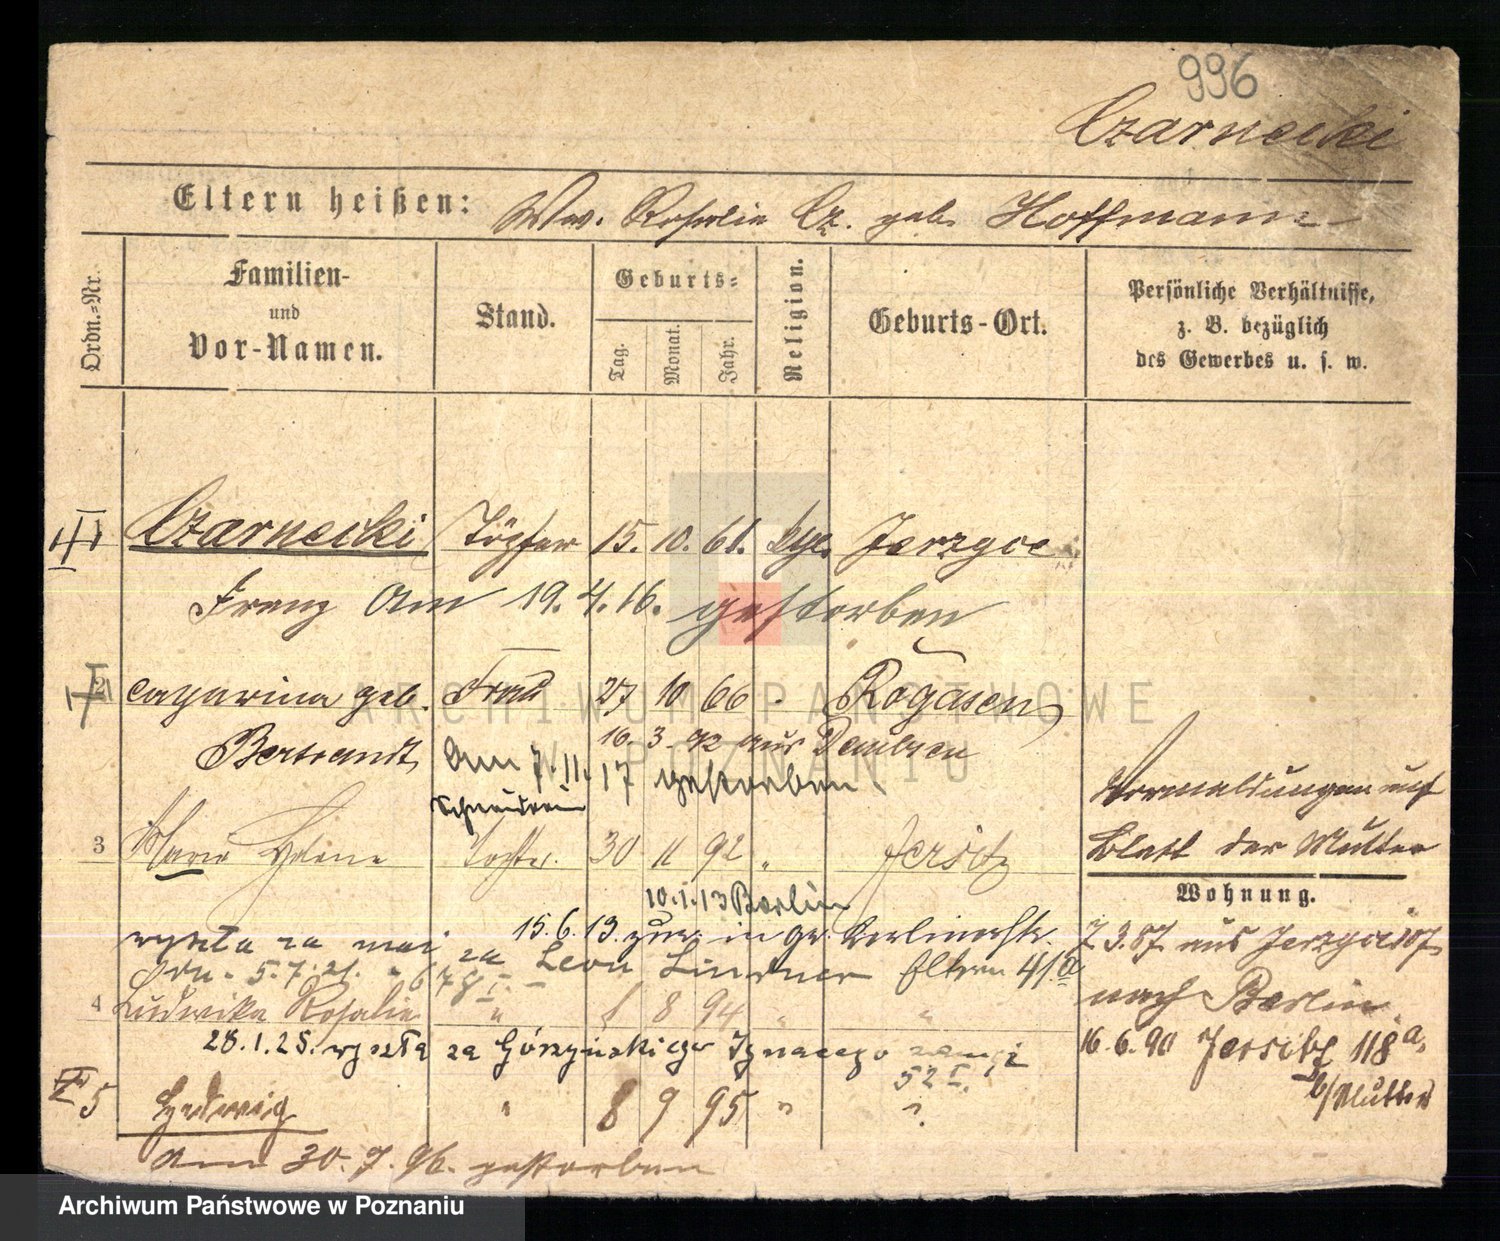 996
Czarnecki
Eltern heißen: Ww. Rosalie Cz. geb. Hoffmann
Ordn.=Nr.
Familien-
und
Vor-Namen.
Stand.
Geburts=
Tag.
Monat.
Jahr.
Religion.
Geburts-Ort.
Persönliche Verhältnisse,
z. B. bezüglich
des Gewerbes u. s. w.
Czarnecki Töpfer 15. 10. 61. Jerzyce
Franz am 19. 4. 16. gestorben
2 geb. Frau 27 10 66 Rogasen
16. 3. 92 aus
am 7. 11. 17 gestorben.
3 Maria Helene Tochter. 30 11 92 " Jersitz
Vormeldungen auf
Blatt der Mutter
Wohnung.
10.1.13 Berlin
15.6.13 in
wyszła za mąż za Leon Lindner Eltern
5.7.21.
7.3.87. aus Jerzyce
nach Berlin.
4 Ludwika Rosalie " 8 94 " "
28.1.25. wyszła za Górzyńskiego Ignacego
52 I.
16.6.90 Jersitz 118a,
b/Mutter
5 Hedwig " 8 9 95 " "
am 30. 7. 96. gestorben
ARCHIWUM PAŃSTWOWE
W POZNANIU
Archiwum Państwowe w Poznaniu